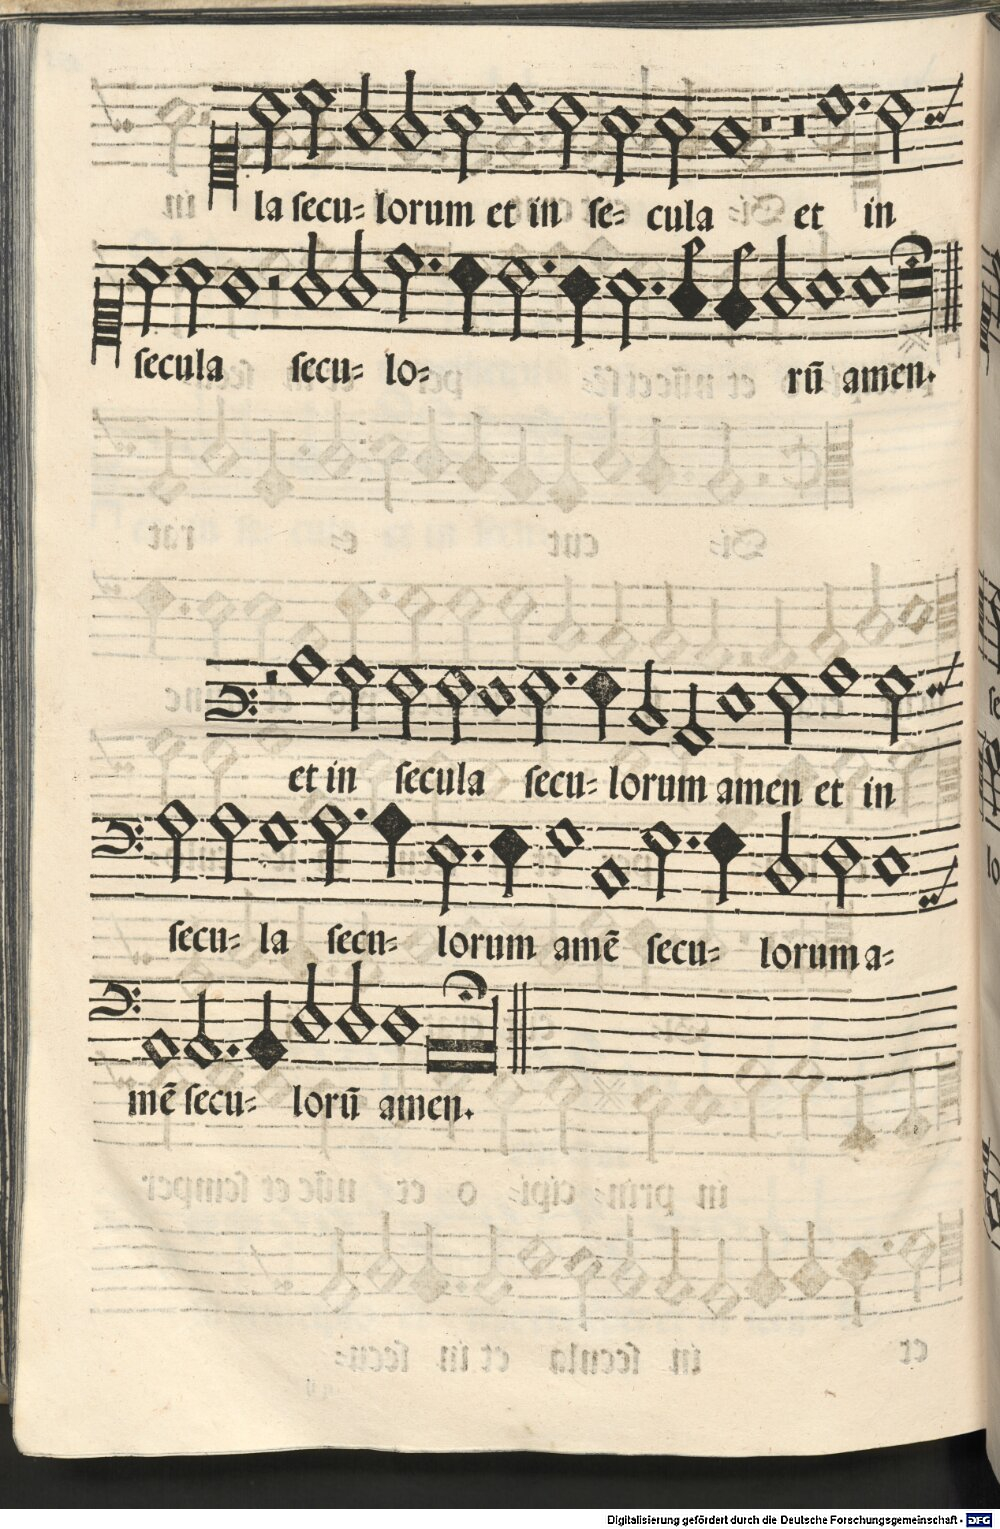 la secu= lorum et in se= cula et in
secula secu= lo= rū amen.
et in secula secu= lorum amen et in
secu= la secu= lorum amē secu= lorum a=
mē secu= lorū amen.
Digitalisierung gefördert durch die Deutsche Forschungsgemeinschaft - DFG